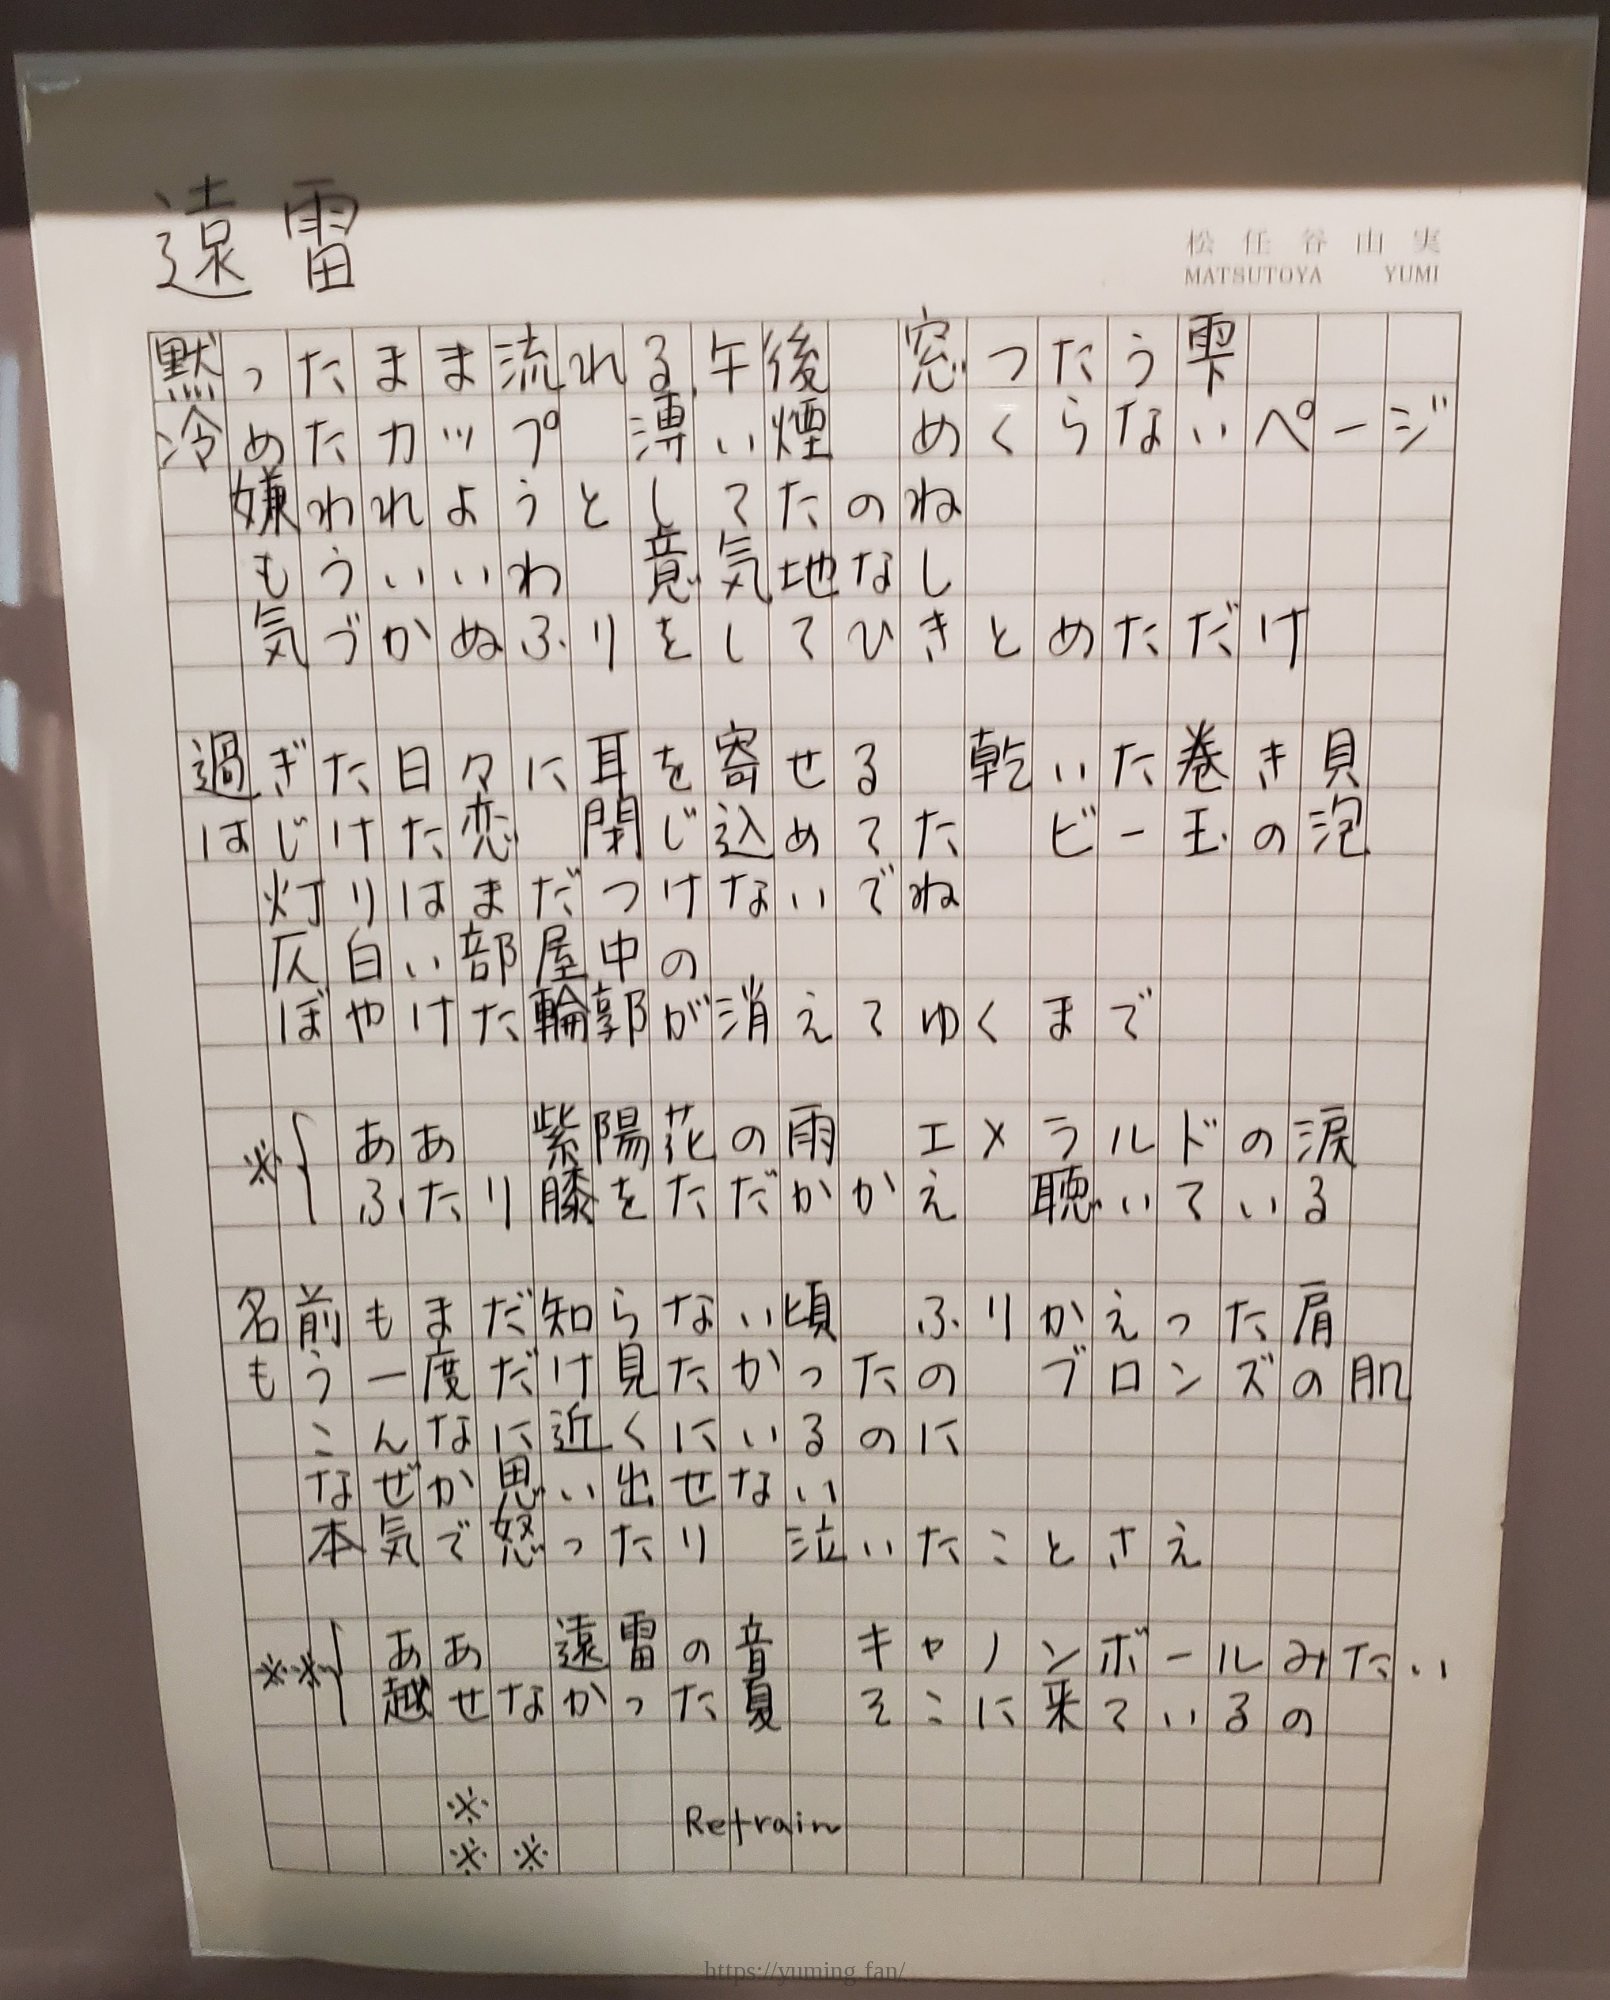 遠雷
松任谷由実
MATSUTOYA YUMI
黙ったまま流れる午後　窓つたう雫
冷めたカップ　薄い煙　めくらないページ
嫌われようとしてたのね
もういいわ　意気地なし
気づかぬふりをしてひきとめただけ
過ぎた日々に耳を寄せる　乾いた巻き貝
はじけた恋　閉じ込めてた　ビー玉の泡
灯りはまだつけないでね
仄白い部屋中の
ぼやけた輪郭が消えてゆくまで
※{ ああ　紫陽花の雨　エメラルドの涙
ふたり膝をただかかえ　聴いている
名前もまだ知らない頃　ふりかえった肩
もう一度だけ見たかったの　ブロンズの肌
こんなに近くにいるのに
なぜか思い出せない
本気で怒ったり　泣いたことさえ
※※{ ああ　遠雷の音　キャノンボールみたい
越せなかった夏　そこに来ているの
※
Refrain
※※
https://yuming.fan/